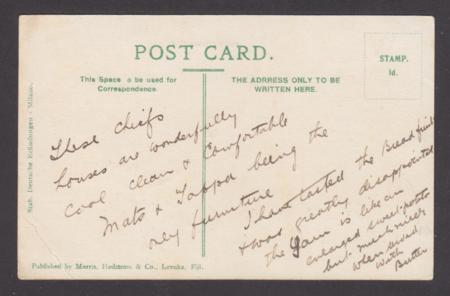 POST CARD.
This Space to be used for
Correspondence.
THE ADRRESS ONLY TO BE
WRITTEN HERE.
STAMP.
1d.
These chiefs
houses are wonderfully
cool clean & Comfortable
Mats & Tappa being the
only furniture
I have tasted the Breadfruit
& was greatly disappointed
the Yam is like an
enlarged sweet-potato
but much nicer
when served
with
Butter
Published by Morris, Hedstrom & Co., Levuka, Fiji.